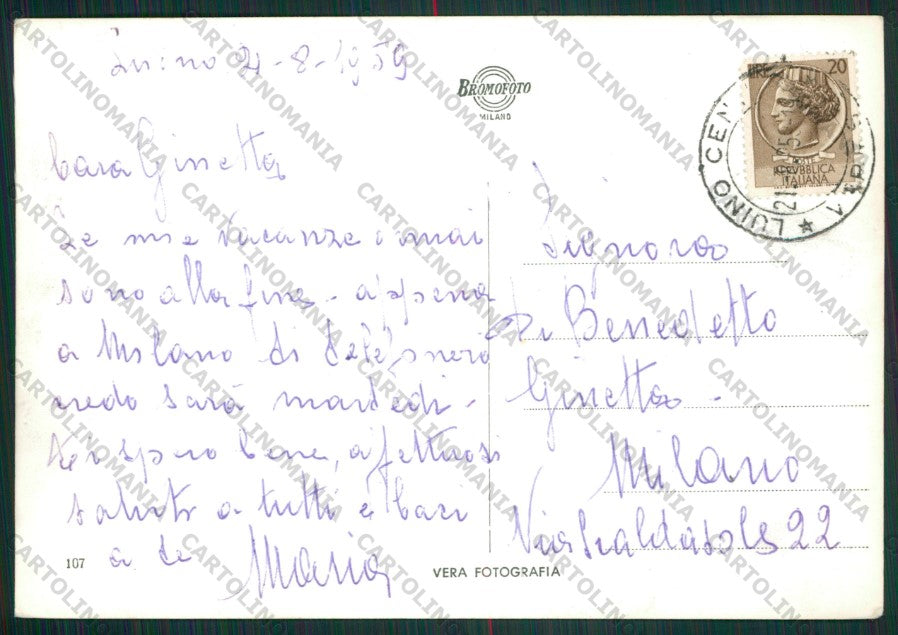 Luino 21-8-1959
BROMOFOTO
MILANO
LIRE 20
REPUBBLICA
ITALIANA
LUINO CEN
Cara Ginetta
Le mie vacanze ormai
sono alla fine - appena
a Milano ti telefonerò
credo sarà martedì -
spero bene, affettuosi
saluti a tutti e baci
a te Maria
Signora
Di Benedetto
Ginetta -
Milano
Via Scaldasole 22
107
VERA FOTOGRAFIA
CARTOLINOMANIA